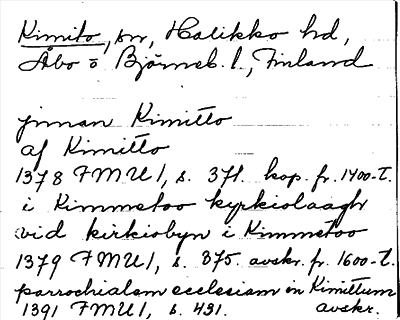 Kimito, sn, Halikko hd,
Åbo o Björneb. l., Finland
jnnan Kimitto
af Kimitto
1378 FMU I, s. 371. kop. fr. 1400-t.
i Kimmetoo kyrkiolaagh
vid kirkiobyn i Kimmetoo
1379 FMU I, s. 375. avskr. fr. 1600-t.
parrochialem ecclesiam in Kimittum
1391 FMU I, s. 431. avskr.